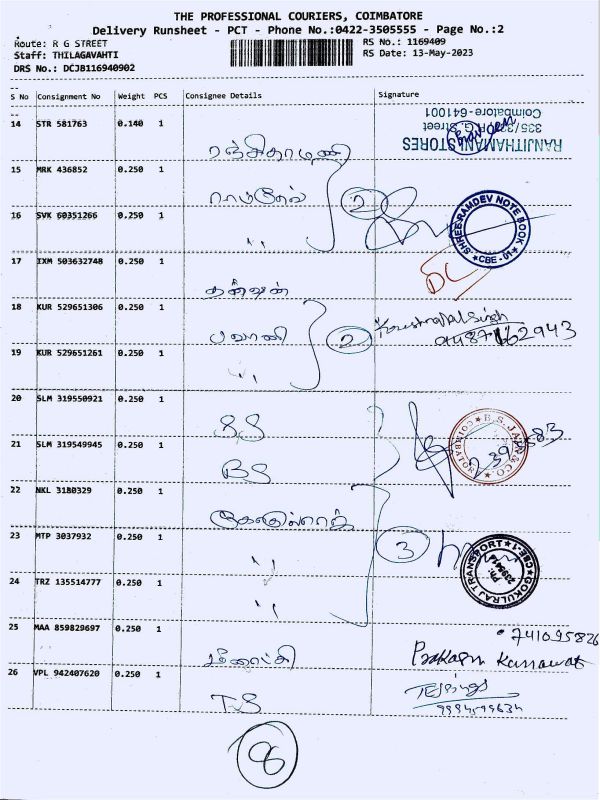 THE PROFESSIONAL COURIERS, COIMBATORE
Delivery Runsheet - PCT - Phone No.:0422-3505555 - Page No.:2
Route: R G STREET
RS No.: 1169409
Staff: THILAGAVATHI
RS Date: 13-May-2023
DRS No.: DCJB116940902
S No Consignment No Weight PCS Consignee Details Signature
14 STR 581763 0.140 1
RANJITHAMANI STORES
335/337, R.G. Street
Coimbatore-641001
ரஞ்சிதாமணி
15 MRK 436852 0.250 1
ராம்தேவ்
2
16 SVK 60351266 0.250 1
,,
SHREE RAMDEV NOTE BOOK
CBE - 01
17 IXM 503632748 0.250 1
DL
18 KUR 529651306 0.250 1
பவானி
2
19 KUR 529651261 0.250 1
,,
20 SLM 319550921 0.250 1
B.S. JAIN & CO.
COIMBATORE
21 SLM 319549945 0.250 1
BS
22 NKL 3180329 0.250 1
கோகுல்ராஜ்
23 MTP 3037932 0.250 1
,,
3
GOKULRAJ TRANSPORT
CBE-1
24 TRZ 135514777 0.250 1
,,
25 MAA 859829697 0.250 1
மீனாட்சி
Prakash
26 VPL 942407620 0.250 1
T.S
8